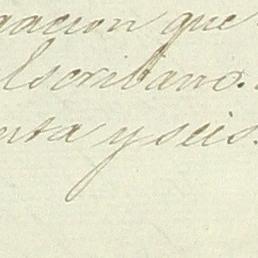 gacion que
Escribano.
nta y seis.